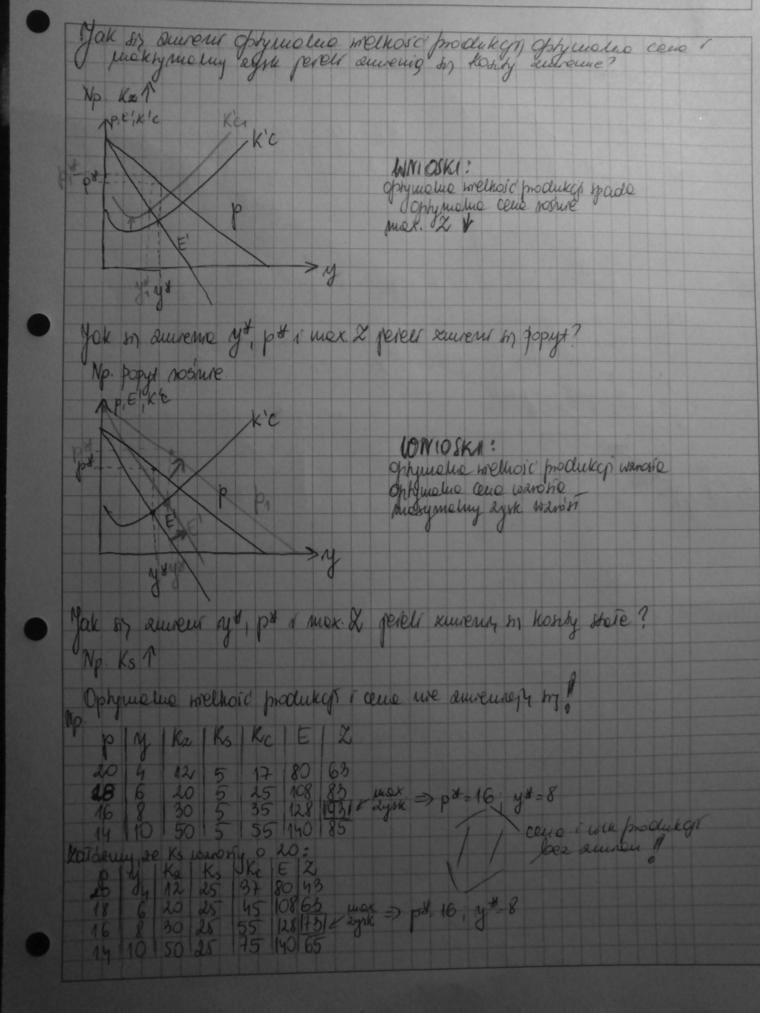 Jak się zmieni optymalna wielkość produkcji, optymalna cena i
maksymalny zysk jeżeli zmienią się koszty zmienne?
Np. Kz ↑
p, E', K'c
K'c1
K'c
p1*
p*
p
E'
y1* y*
y
WNIOSKI:
optymalna wielkość produkcji spada
optymalna cena rośnie
max. Z ↓
Jak się zmienia y*, p* i max Z jeżeli zmieni się popyt?
Np. popyt rośnie
p, E', K'c
K'c
p1*
p*
p
p1
E'
E1'
y* y1*
y
WNIOSKI:
optymalna wielkość produkcji wzrosła
optymalna cena wzrosła
maksymalny zysk wzrósł
Jak się zmieni y*, p* i max. Z jeżeli zmienią się koszty stałe?
Np. Ks ↑
Optymalna wielkość produkcji i cena nie zmieniają się!!
Np.
p | y | Kz | Ks | Kc | E | Z
20 | 4 | 12 | 5 | 17 | 80 | 63
18 | 6 | 20 | 5 | 25 | 108 | 83
16 | 8 | 30 | 5 | 35 | 128 | 93 ← max zysk ⇒ p* = 16; y* = 8
14 | 10 | 50 | 5 | 55 | 140 | 85
cena i wlk produkcji
bez zmian!!
Załóżmy, że Ks wzrosły o 20:
p | y | Kz | Ks | Kc | E | Z
20 | 4 | 12 | 25 | 37 | 80 | 43
18 | 6 | 20 | 25 | 45 | 108 | 63
16 | 8 | 30 | 25 | 55 | 128 | 73 ← max zysk ⇒ p* = 16; y* = 8
14 | 10 | 50 | 25 | 75 | 140 | 65